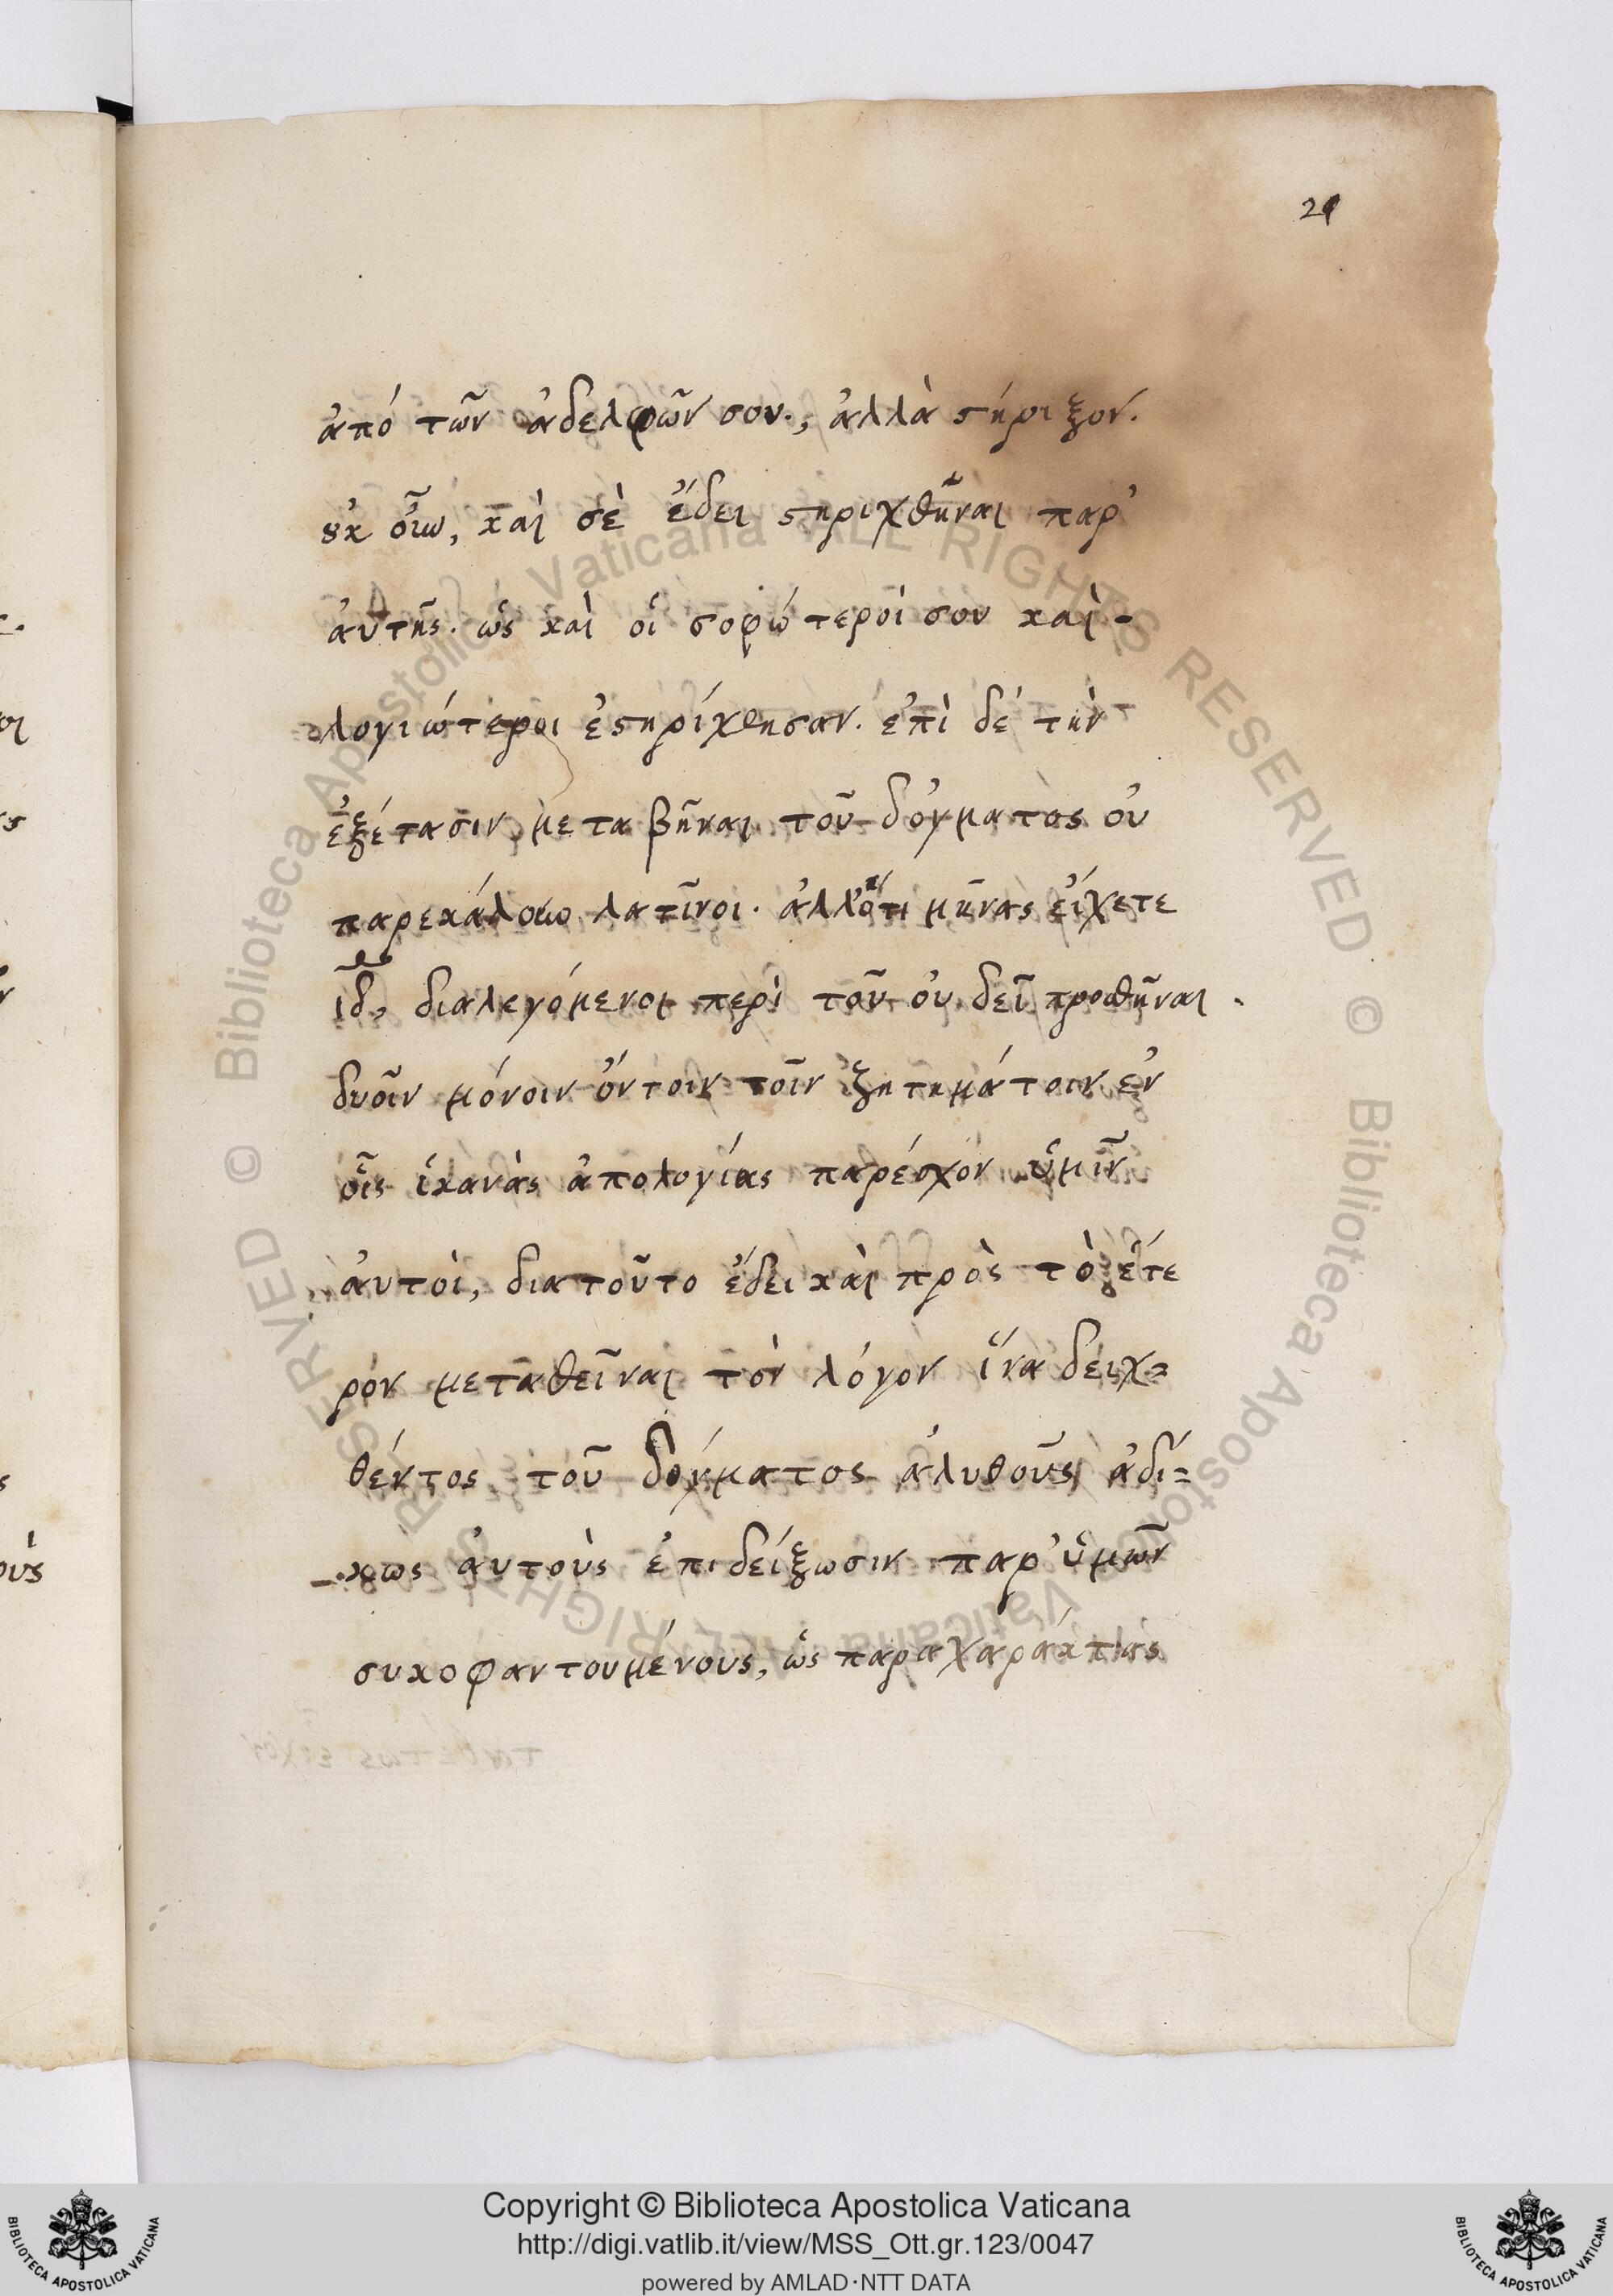 21
ἀπό τῶν ἀδελφῶν σου., ἀλλὰ στήριξον.
ȣ̓κ οἴω, καὶ σὲ ἔδει στηριχθῆναι παρ'
ἀυτῆς. ὡς καὶ οἱ σοφώτεροί σου καὶ-
λογιώτεροι ἐστηρίχθησαν. ἐπὶ δέ τὴν
ἐξέτασιν μεταβῆναι τοῦ δόγματος ὀυ
λατῖνοι. ἀλλ' μῆνας ἐίχετε
ιδ, διαλεγόμενοι περὶ τοῦ ὀυ δεῖ προσθῆναι.
δυοῖν μόνοιν ὄντοιν τοῖν ζητημάτοιν ἐν
οἷς ἱκανὰς ἀπολογίας παρέσχον ὑμῖν
ἀυτοὶ, διατοῦτο ἔδει καὶ πρὸς τὸ ἕτε
ρον μεταθεῖναι τὸν λόγον ἵνα δειχ=
θέντος τοῦ δόγματος ἀλυθοῦς ἀδί=
κως ἀυτοὺς ἐπιδείξωσιν παρ' ὑμῶν
συκοφαντουμένους, ὡς παραχαράκτας
Copyright © Biblioteca Apostolica Vaticana
http://digi.vatlib.it/view/MSS_Ott.gr.123/0047
powered by AMLAD·NTT DATA
BIBLIOTECA APOSTOLICA VATICANA
BIBLIOTECA APOSTOLICA VATICANA
© Biblioteca Apostolica Vaticana ALL RIGHTS RESERVED © Biblioteca Apostolica Vaticana ALL RIGHTS RESERVED